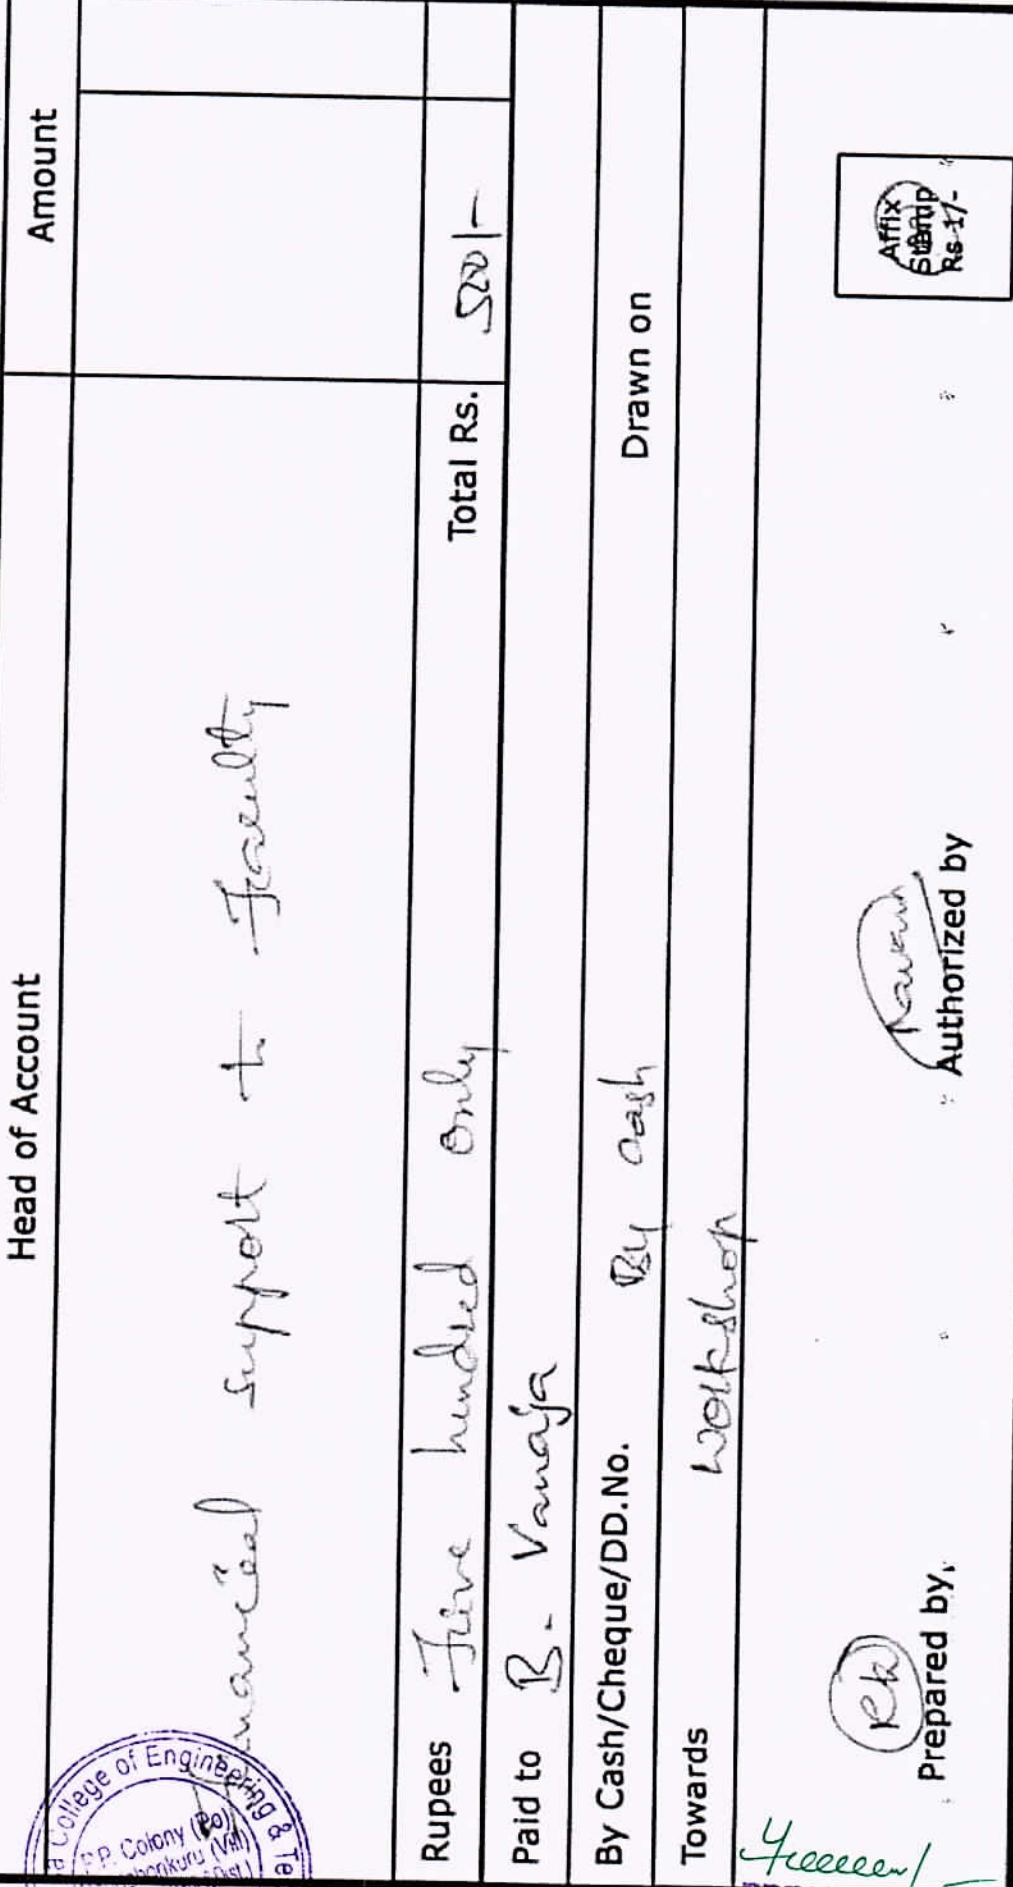 Head of Account Amount
Financial support to Faculty
Rupees Five hundred only Total Rs. 500/-
Paid to B. Vanaja
By Cash/Cheque/DD.No. By cash Drawn on
Towards Workshop
Prepared by Authorized by
Affix
Stamp
Rs 1/-
College of Engineering & Te
P.P. Colony (Po)
(Vill)